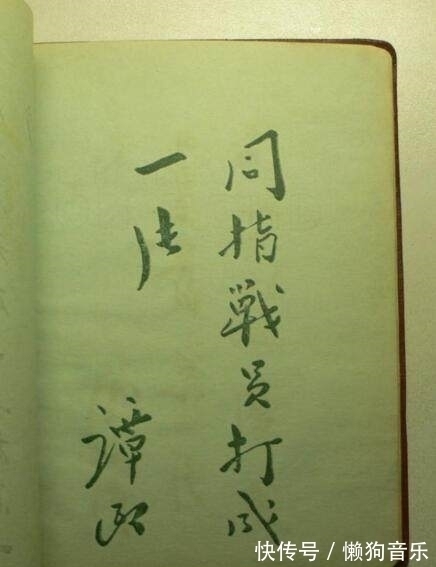 同指戰员打成
一片
譚政
快传号/懒狗音乐